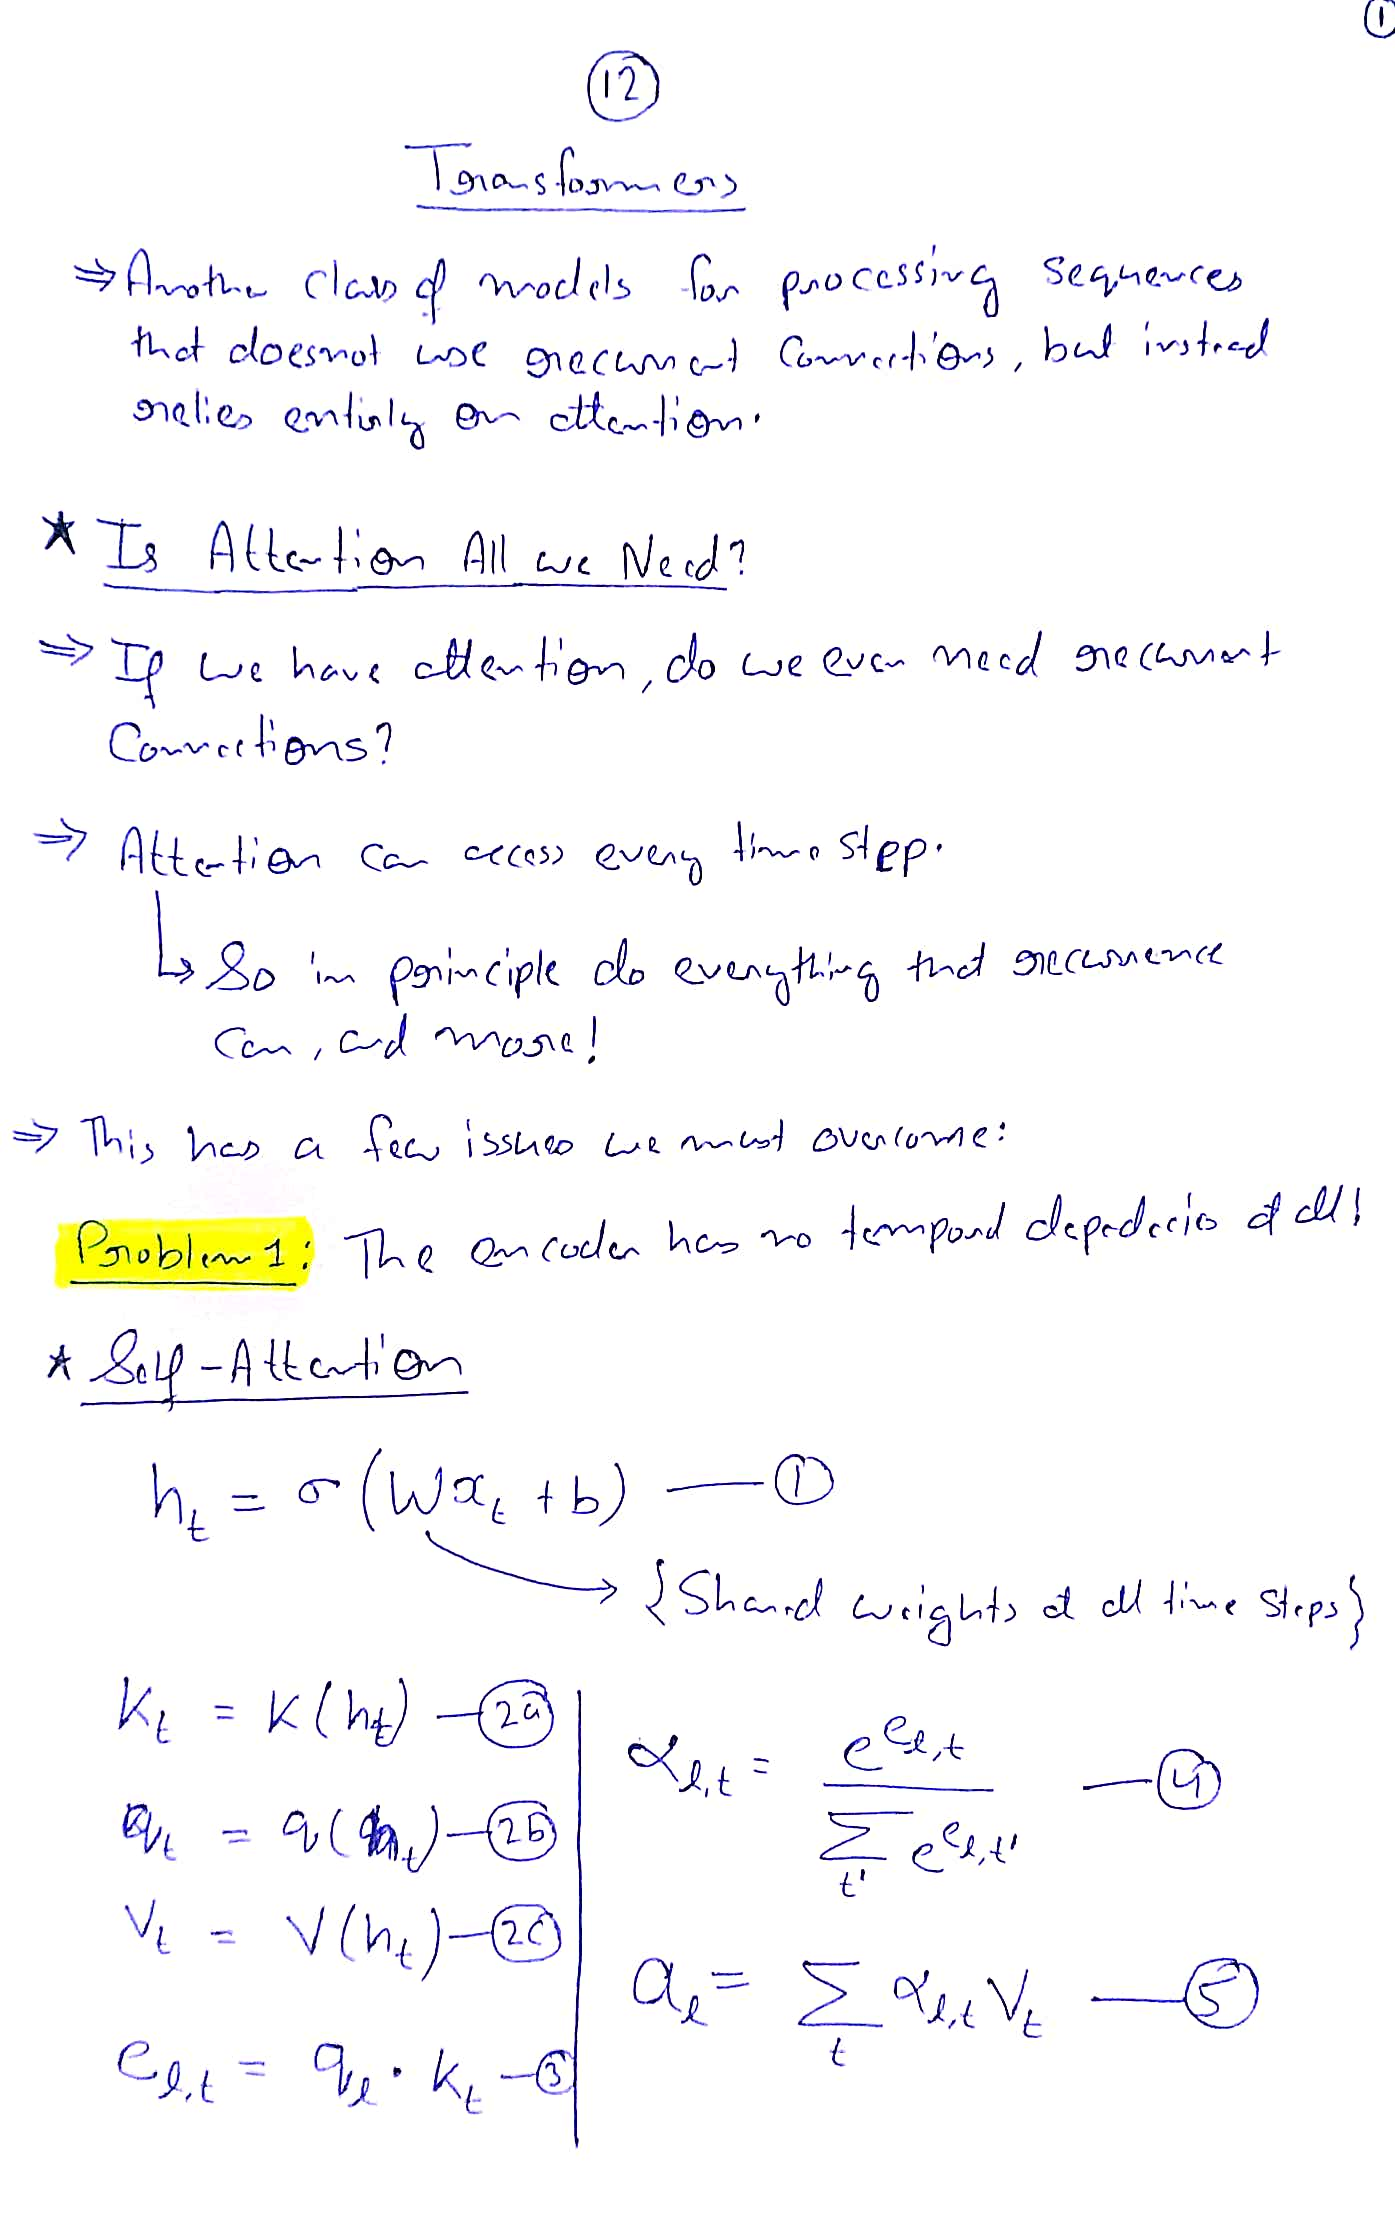 ①
⑫
Transformers
⇒ Another class of models for processing sequences
that doesnot use recurrent connections, but instead
relies entirly on attention.
★ Is Attention All we Need?
⇒ If we have attention, do we even need recurrent
Connections?
⇒ Attention can access every time step.
↳ So in principle do everything that recurrence
can, and more!
⇒ This has a few issues we must overcome:
Problem 1: The encoder has no temporal dependecies at all!
★ Self-Attention
h_t = σ(Wx_t + b) — ①
→ {Shared weights at all time steps}
k_t = k(h_t) — 2a
q_t = q(h_t) — 2b
v_t = v(h_t) — 2c
e_{l,t} = q_l · k_t — ③
α_{l,t} = e^{e_{l,t}} / Σ_{t'} e^{e_{l,t'}} — ④
a_l = Σ_t α_{l,t} v_t — ⑤